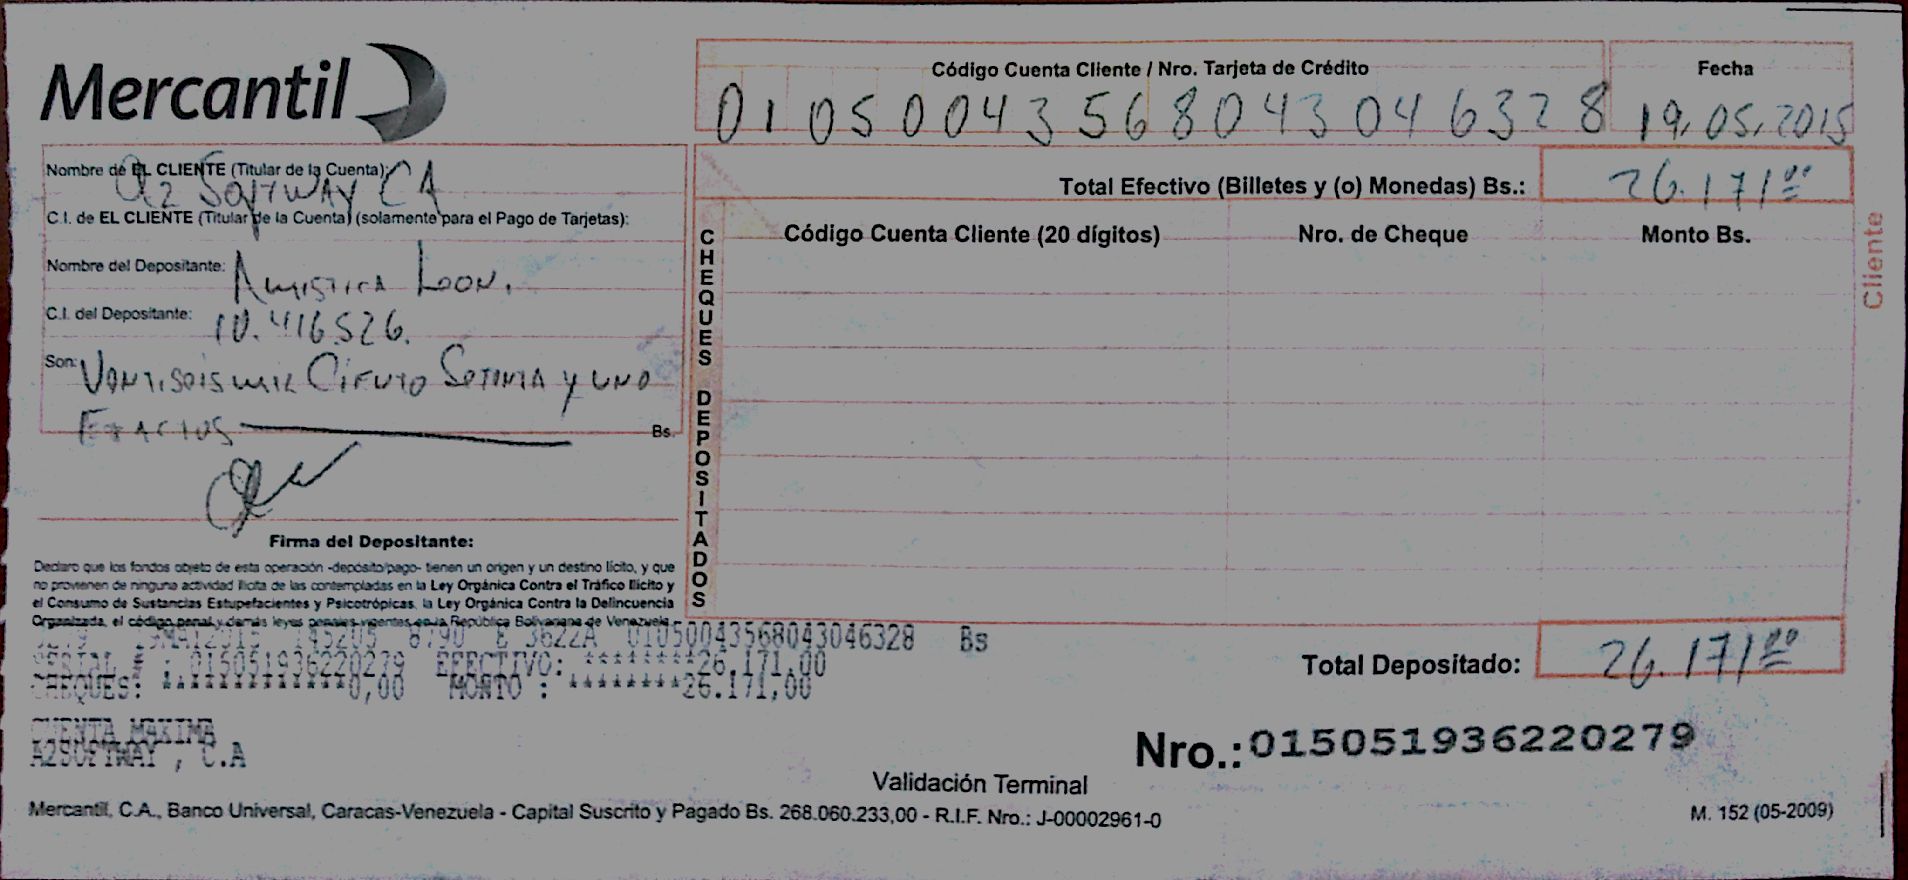 Mercantil
Código Cuenta Cliente / Nro. Tarjeta de Crédito
01050043568043046328
Fecha
19.05.2015
Nombre de EL CLIENTE (Titular de la Cuenta):
a2 Softway CA
C.I. de EL CLIENTE (Titular de la Cuenta) (solamente para el Pago de Tarjetas):
Nombre del Depositante:
Leon.
C.I. del Depositante: 10.416.526.
Son: Ventiseis mil Ciento Setenta y uno
Exactos
Bs.
Firma del Depositante:
Declaro que los fondos objeto de esta operación -depósito/pago- tienen un origen y un destino lícito, y que
no provienen de ninguna actividad ilícita de las contempladas en la Ley Orgánica Contra el Tráfico Ilícito y
el Consumo de Sustancias Estupefacientes y Psicotrópicas, la Ley Orgánica Contra la Delincuencia
Organizada, el código penal y demás leyes penales vigentes en la República Bolivariana de Venezuela.
Total Efectivo (Billetes y (o) Monedas) Bs.: 26.171,00
CHEQUES DEPOSITADOS
Código Cuenta Cliente (20 dígitos)
Nro. de Cheque
Monto Bs.
Cliente
Total Depositado: 26.171,00
19MAY2015 145205 8790 E 3622A 01050043568043046328 Bs
SERIAL # : 015051936220279 EFECTIVO: ********26.171,00
CHEQUES: **************0,00 MONTO : ********26.171,00
CUENTA MAXIMA
A2SOFTWAY , C.A
Nro.: 015051936220279
Validación Terminal
Mercantil, C.A., Banco Universal, Caracas-Venezuela - Capital Suscrito y Pagado Bs. 268.060.233,00 - R.I.F. Nro.: J-00002961-0
M. 152 (05-2009)